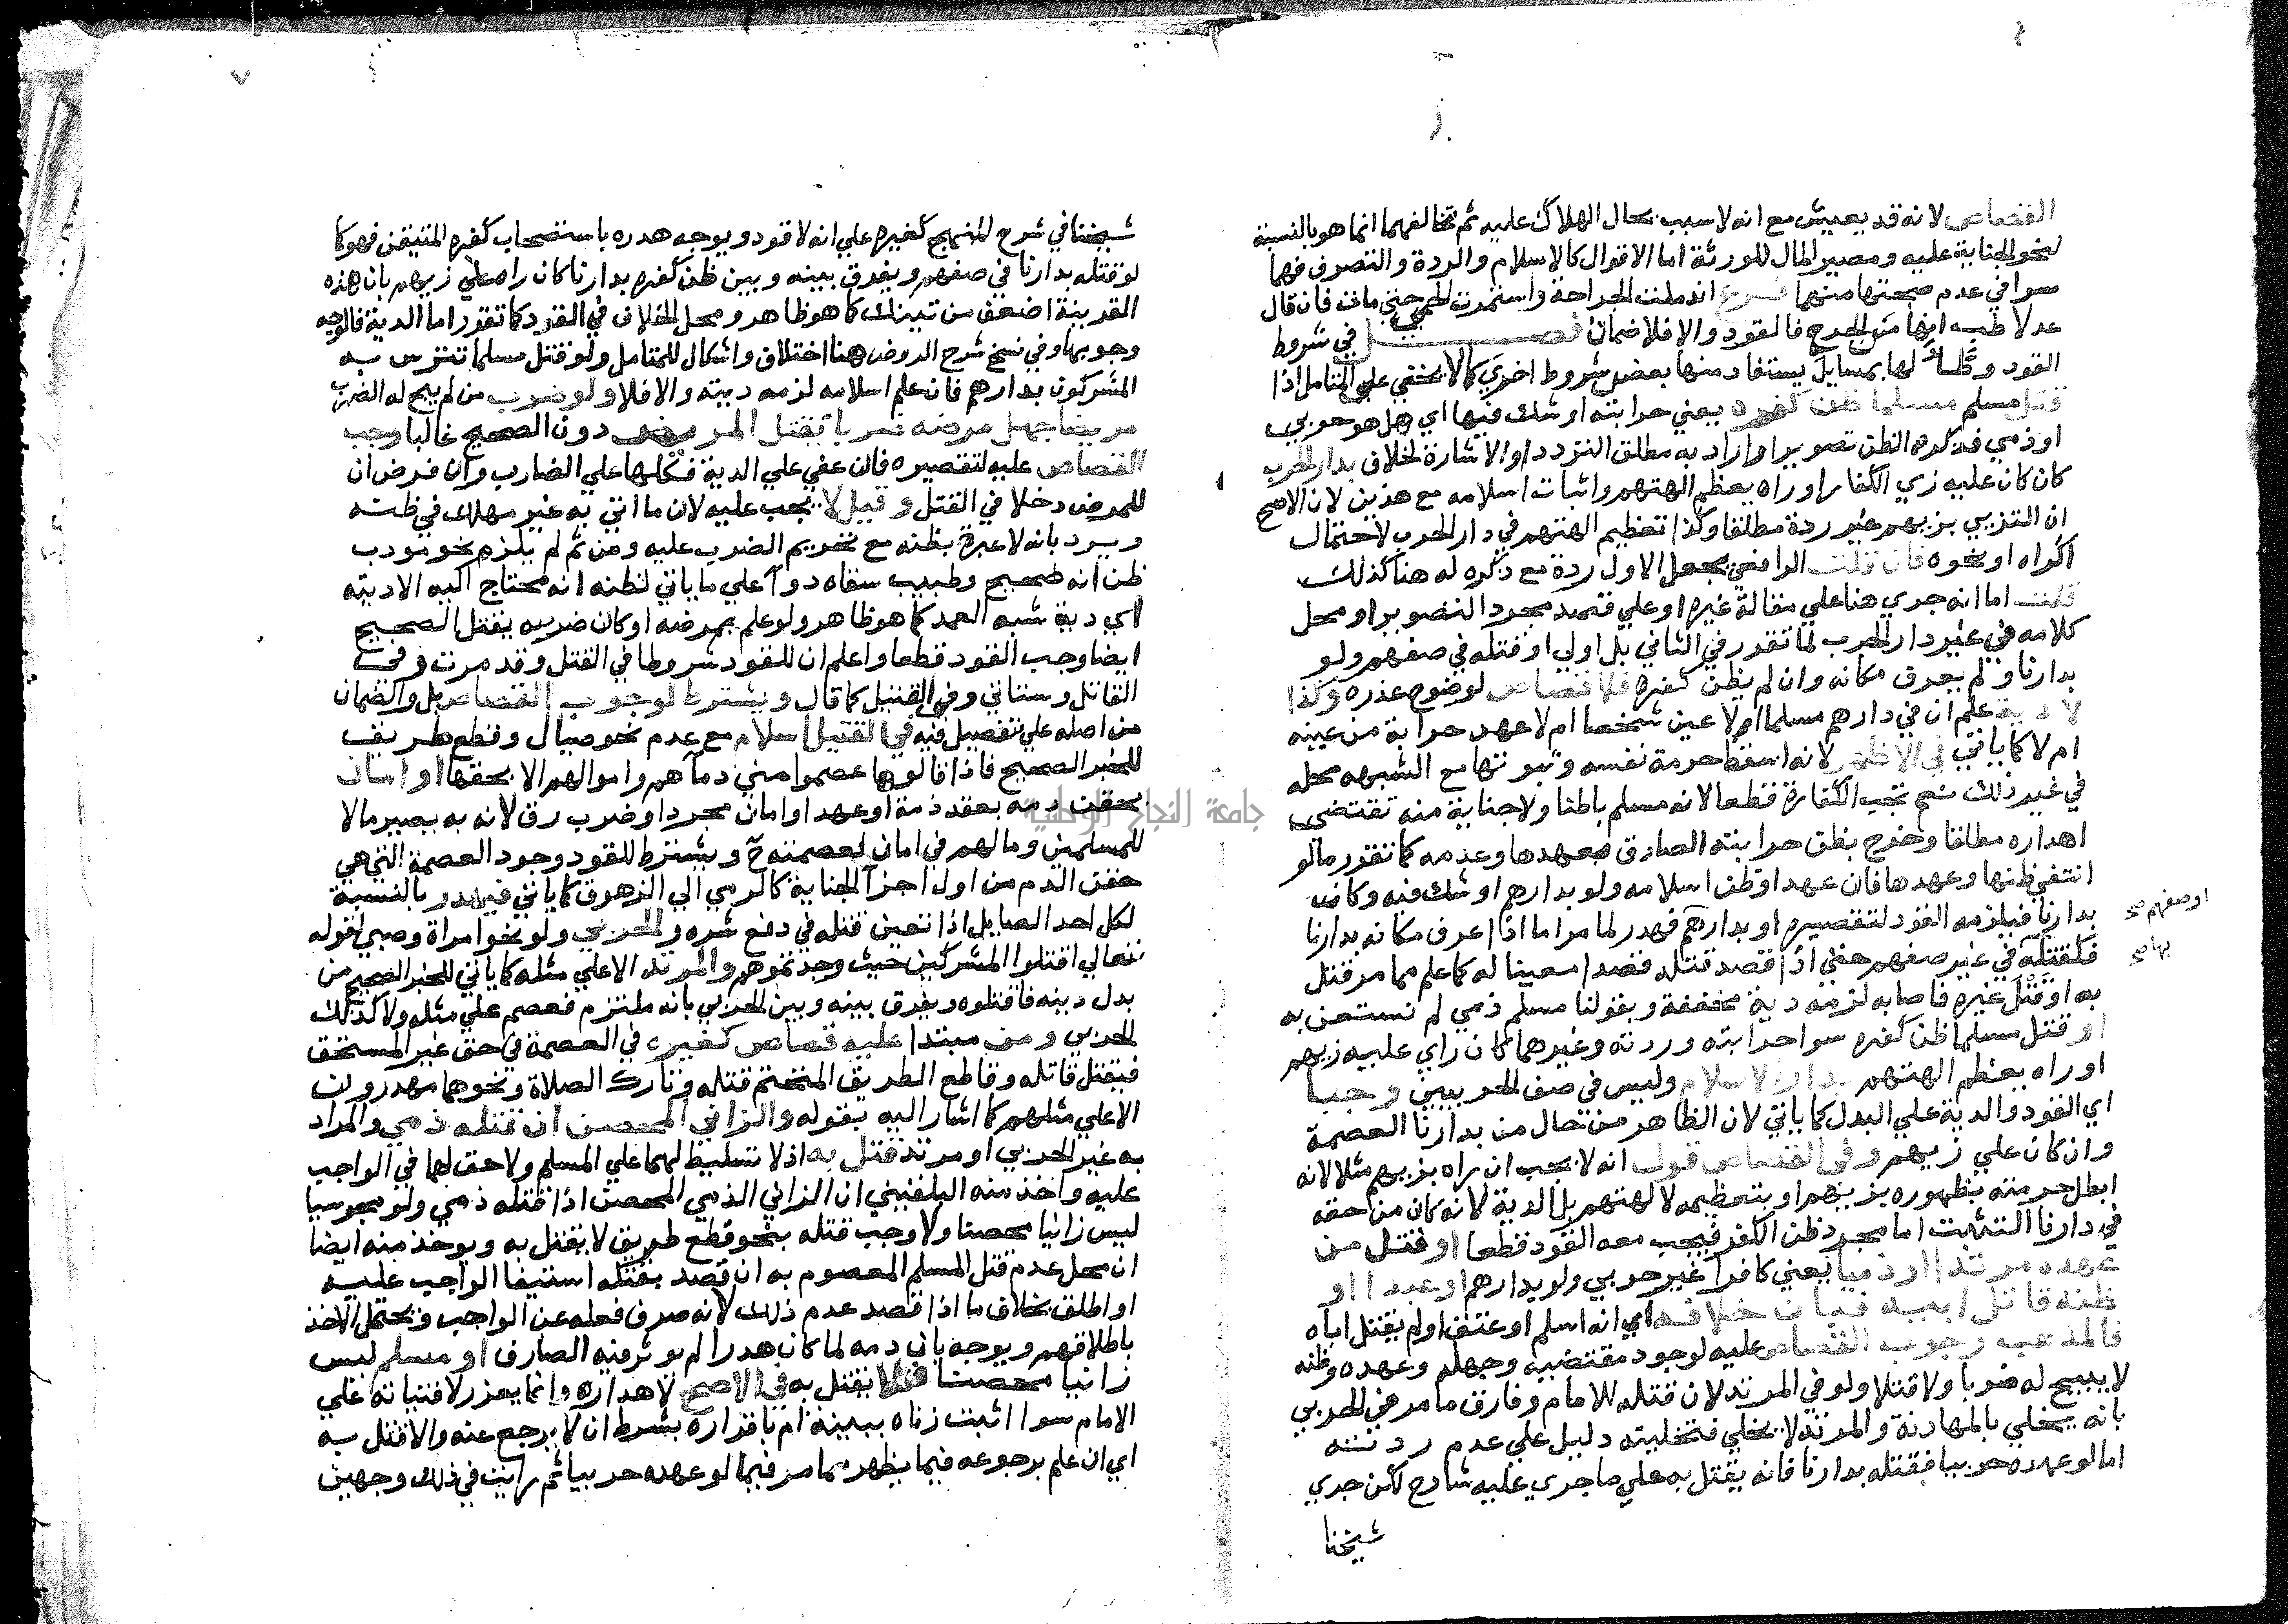 القصاص لانه قد يعيش مع انه لا سبب يحال الهلاك عليه ثم تخالفهما انما هو بالنسبة
لنحو الجناية عليه ومصير المال للورثة اما الاقوال كالاسلام والردة والتصرف فهما
سوا في عدم صحتها منهما فرع اندملت الجراحة واستمرت الحمي حتي مات فان قال
عدلا طب انها من الجرح فالقود والا فلا ضمان فصل في شروط
القود و لها بمسايل يستفاد منها بعض شروط اخري كما لا يخفي علي المتامل اذا
قتل مسلم مسلما ظن كفره يعني حرابته او شك فيها اي هل هو حربي
او ذمي فذكره الظن تصوير او اراد به مطلق التردد او الاشارة لخلاف بدار الحرب
كان كان عليه زي الكفار او راه يعظم الهتهم واثبات اسلامه مع هذين لان الاصح
ان التزيي بزيهم غير ردة مطلقا وكذا تعظيم الهتهم في دار الحرب لاحتمال
اكراه او نحوه فان قلت الرافعي يجعل الاول ردة مع ذكره له هنا كذلك
قلت اما انه جري هنا علي مقالة غيره او علي قصد مجرد التصوير او محل
كلامه في غير دار الحرب لما تقرر في الثاني بل اولي او قتله في صفهم ولو
بدارنا ولم يعرف مكانه وان لم يظن كفره فلا قصاص لوضوح عذره وكذا
لا دية علم ان في دارهم مسلما ام لا عين شخصا ام لا عهد حرابة من عينه
ام لا كما ياتي في الاظهر لانه اسقط حرمة نفسه وثبوتها مع الشبهه محله
في غير ذلك نعم تجب الكفارة قطعا لانه مسلم باطنا ولا جناية منه تقتضي
اهداره مطلقا وخرج بظن حرابته الصادق بعهدها وعدمه كما تقرر ما لو
انتفي ظنها وعهدها فان عهد او ظن اسلامه ولو بدارهم او شك فيه وكان
بدارنا فيلزمه القود لتقصيره او بدارهم فهدر لما مر اما اذا عرف مكانه بدارنا
او صفهم صح
بها صح
فكقتله في غير صفهم حتي اذا قصد قتله قصدا معينا له كما علم مما مر قتل
به او قتل غيره فاصابه لزمته دية مخففة وبقولنا مسلم ذمي لم نستعن به
او قتل مسلما ظن كفره سوا حرابته وردته وغيرهما كان راي عليه زيهم
او راه يعظم الهتهم بدار الاسلام وليس في صف الحربيين وجبا
اي القود والدية علي البدل كما ياتي لان الظاهر من حال من بدارنا العصمة
وان كان علي زيهم وفي القصاص قول انه لا يجب ان راه بزيهم مثلا لانه
ابطل حرمته بظهوره بزيهم او بتعظيمه لالهتهم بل الدية لانه كان من حقه
في دارنا التثبت اما مجرد ظن الكفر فيجب معه القود قطعا او قتل من
عهده مرتدا او ذميا يعني كافرا غير حربي ولو بدارهم او عبدا او
ظنه قاتل ابيه فبان خلافه اي انه اسلم او عتق او لم يقتل اباه
فالمذهب وجوب القصاص عليه لوجود مقتضيه وجهله وعهده وظنه
لا يبيح له ضربا ولا قتلا ولو في المرتد لان قتله للامام وفارق ما مر في الحربي
بانه يخلي بالمهادنة والمرتد لا يخلي فتخليته دليل علي عدم ردته
اما لو عهده حربيا فقتله بدارنا فانه يقتل به علي ما جري عليه شارح لكن جري
شيخنا
شيخنا في شرح المنهج كغيره علي انه لا قود ويوجه هدره باستصحاب كفره المتيقن فهو كما
لو قتله بدارنا في صفهم ويفرق بينه وبين ظن كفره بدارنا كان راه علي زيهم بان هذه
القرينة اضعف من تينك كما هو ظاهر ومحل الخلاف في القود كما تقرر اما الدية فالوجه
وجوبها وفي نسخ شرح الروض هنا اختلاف واشكال للمتامل ولو قتل مسلما تترس به
المشركون بدارهم فان علم اسلامه لزمه ديته والا فلا ولو ضرب من لم يبح له الضرب
مريضا جهل مرضه ضربا يقتل المريض دون الصحيح غالبا وجب
القصاص عليه لتقصيره فان عفي علي الدية فكلها علي الضارب وان فرض ان
للمرض دخلا في القتل وقيل لا يجب عليه لان ما اتي به غير مهلك في ظنه
ويرد بانه لا عبرة بظنه مع تحريم الضرب عليه ومن ثم لم يلزم نحو مودب
ظن انه صحيح وطبيب سقاه دوآ علي ما ياتي لظنه انه محتاج اليه الا ديته
اي دية شبه العمد كما هو ظاهر ولو علم بمرضه او كان ضربه يقتل الصحيح
ايضا وجب القود قطعا واعلم ان للقود شروطا في القتل وقد مرت وفي
القاتل وستاتي وفي القتيل كما قال ويشترط لوجوب القصاص بل والضمان
من اصله علي تفصيل فيه في القتيل اسلام مع عدم نحو صيال وقطع طريق
للخبر الصحيح فاذا قالوها عصموا مني دماهم واموالهم الا بحقها او امان
بحقن دمه بعقد ذمة او عهد او امان مجرد او ضرب رق لانه به يصير مالا
للمسلمين ومالهم في امان لعصمته ح ويشترط للقود وجود العصمة التي هي
حقن الدم من اول اجزآ الجناية كالرمي الي الزهوق كما ياتي فيهدر بالنسبة
لكل احد الصايل اذا تعين قتله في دفع شره والحربي ولو نحو امراة وصبي لقوله
تعالي اقتلوا المشركين حيث وجدتموهم والمرتد الا علي مثله كما ياتي للخبر الصحيح من
بدل دينه فاقتلوه ويفرق بينه وبين الحربي بانه ملتزم فعصم علي مثله ولا كذلك
الحربي ومن مبتدا عليه قصاص كغيره في العصمة في حق غير المستحق
فيقتل قاتله وقاطع الطريق المتحتم قتله وتارك الصلاة ونحوهما مهدرون
الا علي مثلهم كما اشار اليه بقوله والزاني المحصن ان قتله ذمي والمراد
به غير الحربي او مرتد قتل به اذ لا تسليط لهما علي المسلم ولا حق لهما في الواجب
عليه واخذ منه البلقيني ان الزاني الذمي المحصن اذا قتله ذمي ولو مجوسيا
ليس زانيا محصنا ولا وجب قتله بنحو قطع طريق لا يقتل به ويوخذ منه ايضا
ان محل عدم قتل المسلم المعصوم به ان قصد بقتله استيفا الواجب عليه
او اطلق بخلاف ما اذا قصد عدم ذلك لانه صرف فعله عن الواجب ويحتمل الاخذ
باطلاقهم ويوجه بان دمه لما كان هدرا لم يوثر فيه الصارف او مسلم ليس
زانيا محصنا فلا يقتل به في الاصح لاهداره وانما يعزر لافتياته علي
الامام سوا اثبت زناه ببينة ام باقراره بشرط ان لا يرجع عنه والا قتل به
اي ان علم برجوعه فيما يظهر مما مر فيما لو عهده حربيا ثم رايت في ذلك وجهين
جامعة النجاح الوطنية